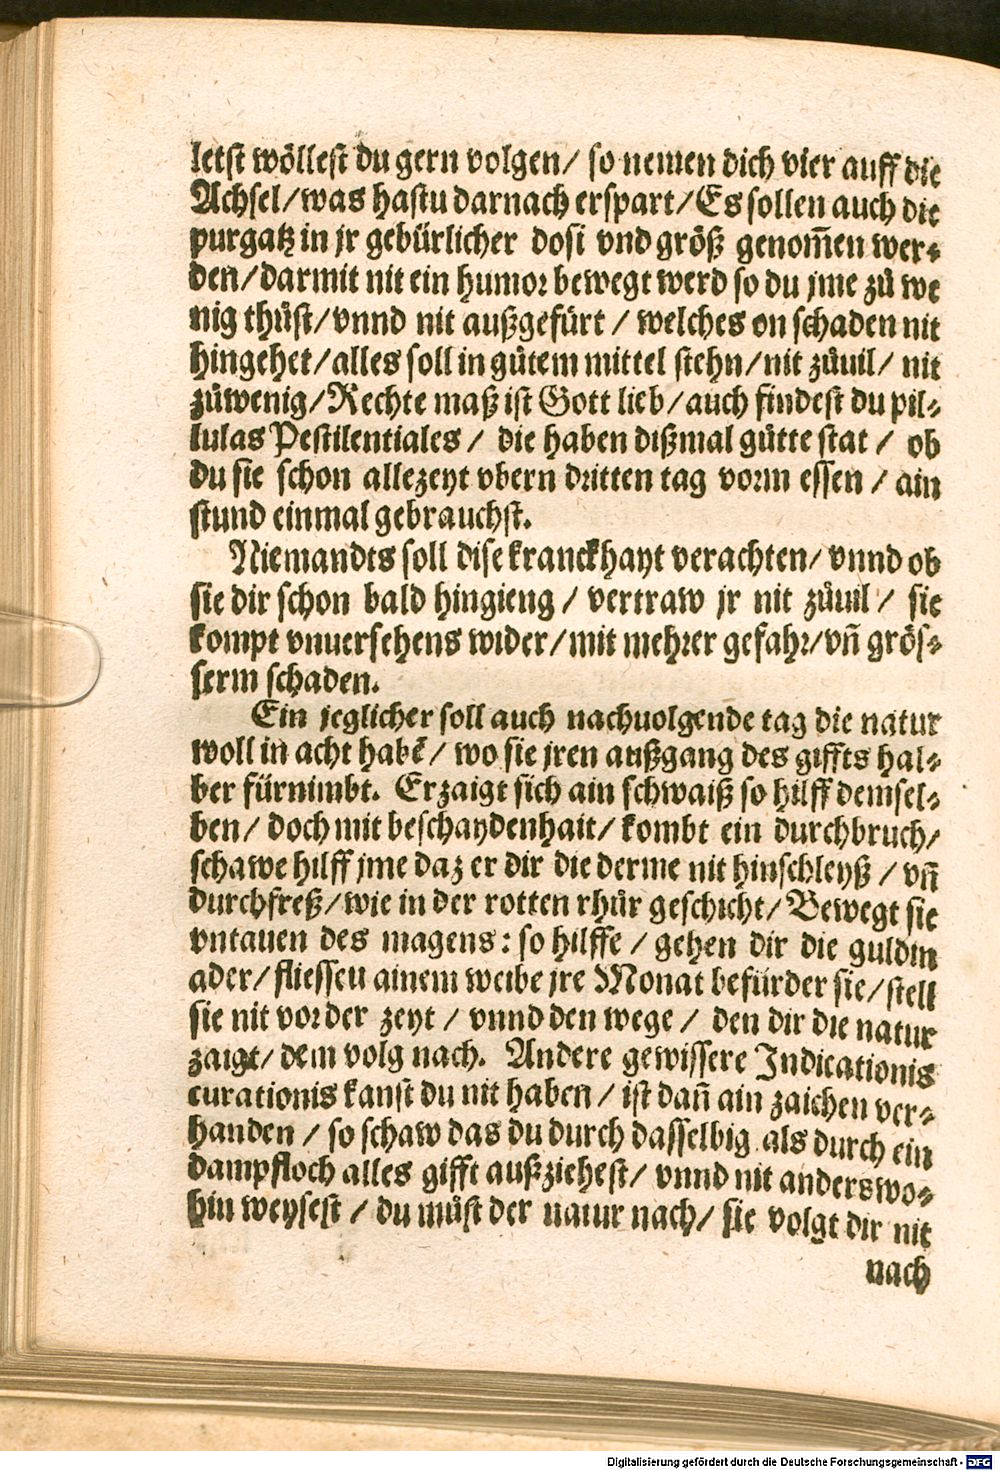 letſt wöllest du gern volgen/ so nemen dich vier auff die
Achsel/was hastu darnach erspart/Es sollen auch die
purgatz in jr gebürlicher dosi vnd größ genom̃en wer⸗
den/darmit nit ein humor bewegt werd so du jme zů we
nig thůst/vnnd nit außgefürt / welches on schaden nit
hingehet/alles soll in gůtem mittel stehn/nit zůuil/ nit
zůwenig/Rechte maß ist Gott lieb/auch findest du pil⸗
lulas Pestilentiales / die haben dißmal gůtte stat / ob
du sie schon allezeyt vbern dritten tag vorm essen / ain
stund einmal gebrauchst.
Niemandts soll dise kranckhayt verachten/ vnnd ob
sie dir schon bald hingieng / vertraw jr nit zůuil / sie
kompt vnuersehens wider/mit mehrer gefahr/vñ grös⸗
serm schaden.
Ein jeglicher soll auch nachuolgende tag die natur
woll in acht habẽ/ wo sie jren außgang des giffts hal⸗
ber fürnimbt. Erzaigt sich ain schwaiß so hilff demsel⸗
ben/ doch mit beschaydenhait/ kombt ein durchbruch/
schawe hilff jme daz er dir die derme nit hinschleyß / vñ
durchfreß/wie in der rotten rhůr geschicht/ Bewegt sie
vntauen des magens: so hilffe / gehen dir die guldin
ader/ fliessen ainem weibe jre Monat befürder sie/stell
sie nit vor der zeyt / vnnd den wege / den dir die natur
zaigt/ dem volg nach. Andere gewissere Indicationis
curationis kanst du nit haben / ist dañ ain zaichen ver⸗
handen / so schaw das du durch dasselbig als durch ein
dampfloch alles gifft außziehest/ vnnd nit anderswo⸗
hin weysest / du můst der natur nach/ sie volgt dir nit
nach
Digitalisierung gefördert durch die Deutsche Forschungsgemeinschaft - DFG